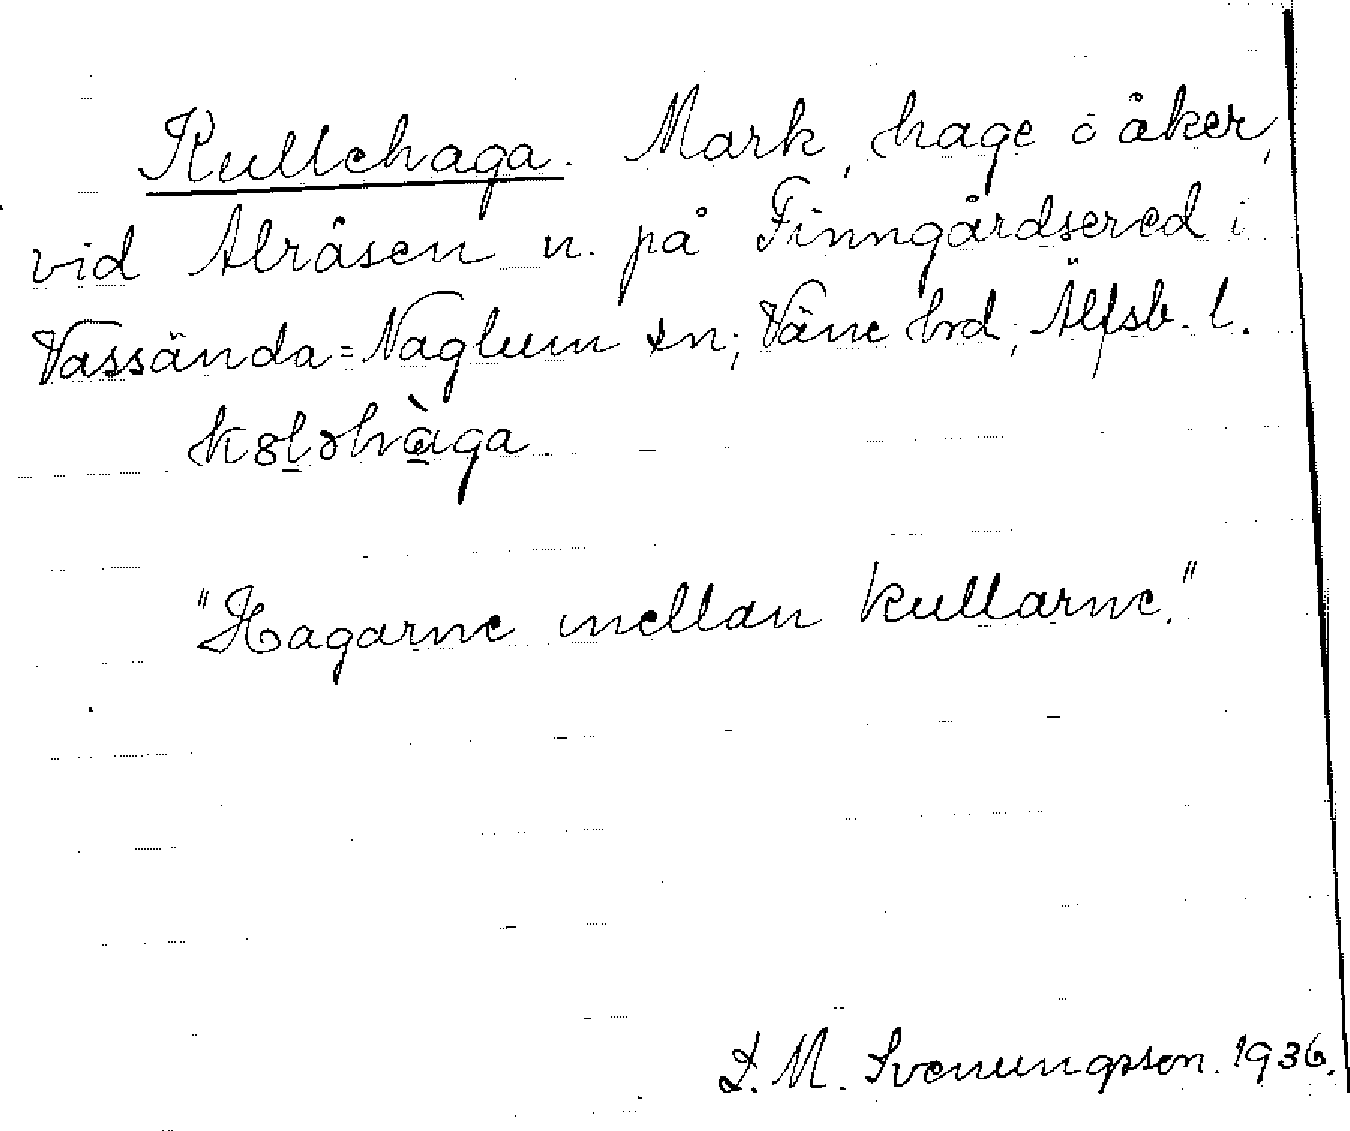 Kullehaga. Mark, hage o åker,
vid Alråsen n. på Finngårdsered i
Vassända=Naglum sn; Väne hrd, Älfsb. l.
k8l̠əhà̠ga
"Hagarne mellan kullarne."
S. M. Svenungsson. 1936.